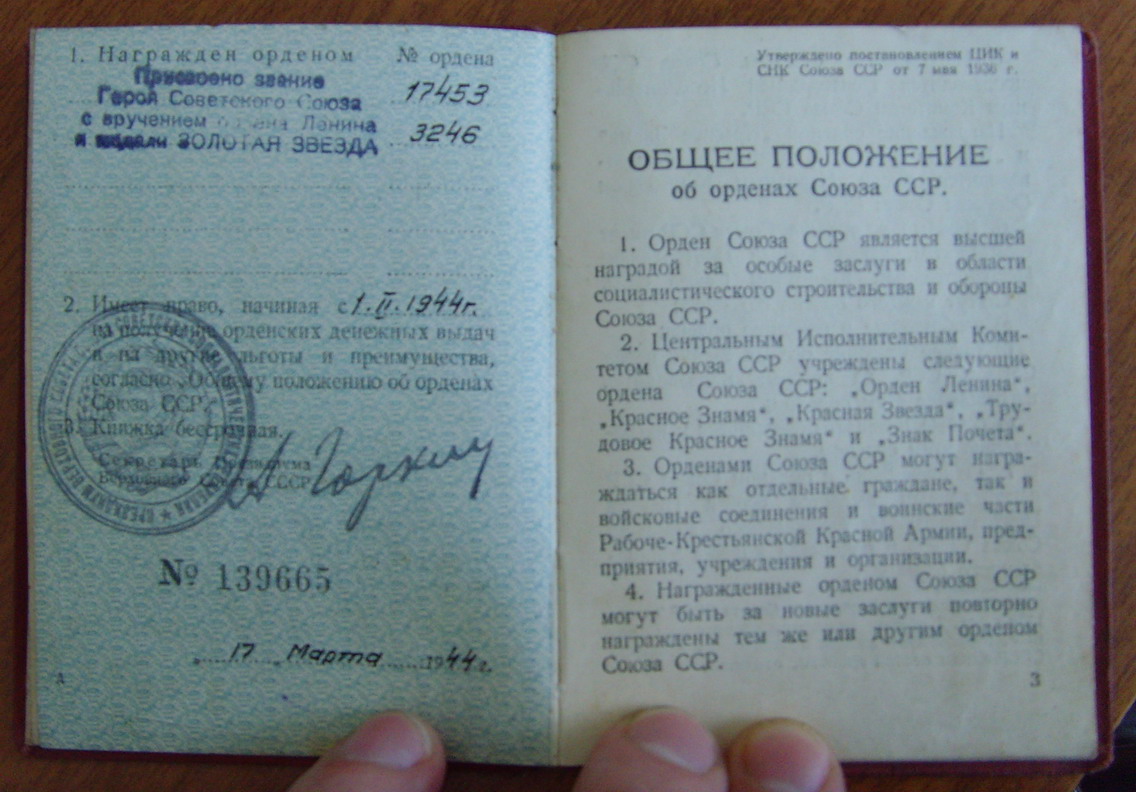 1. Награжден орденом № ордена
Присвоено звание
Герой Советского Союза 17453
с вручением ордена Ленина
и медали ЗОЛОТАЯ ЗВЕЗДА 3246
2. Имеет право, начиная с 1.II.1944г.
на получение орденских денежных выдач
и на другие льготы и преимущества,
согласно „Общему положению об орденах
Союза ССР“.
3. Книжка бессрочная.
Секретарь Президиума
Верховного Совета СССР
А Горкин
№ 139665
„ 17 „ Марта 1944 г.
А
Утверждено постановлением ЦИК и
СНК Союза ССР от 7 мая 1936 г.
ОБЩЕЕ ПОЛОЖЕНИЕ
об орденах Союза ССР.
1. Орден Союза ССР является высшей
наградой за особые заслуги в области
социалистического строительства и обороны
Союза ССР.
2. Центральным Исполнительным Коми-
тетом Союза ССР учреждены следующие
ордена Союза ССР: „Орден Ленина“,
„Красное Знамя“, „Красная Звезда“, „Тру-
довое Красное Знамя“ и „Знак Почета“.
3. Орденами Союза ССР могут награ-
ждаться как отдельные граждане, так и
войсковые соединения и воинские части
Рабоче-Крестьянской Красной Армии, пред-
приятия, учреждения и организации.
4. Награжденные орденом Союза ССР
могут быть за новые заслуги повторно
награждены тем же или другим орденом
Союза ССР.
3